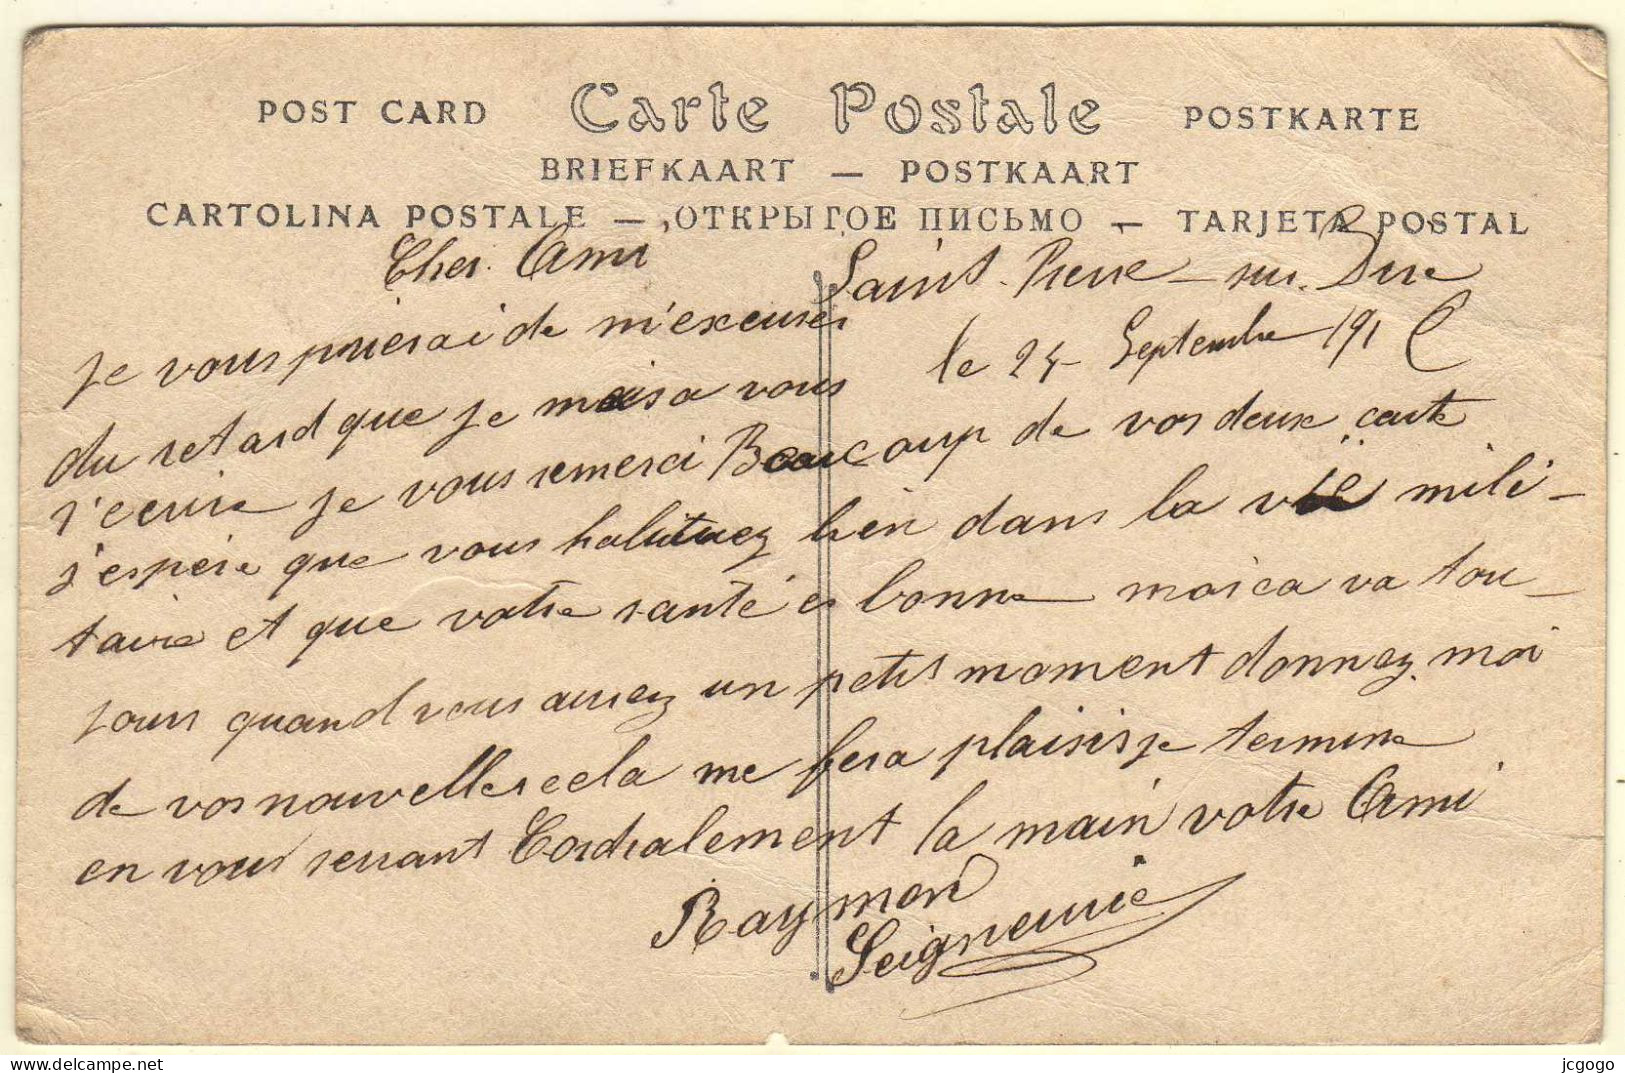 POST CARD Carte Postale POSTKARTE
BRIEFKAART — POSTKAART
CARTOLINA POSTALE — ОТКРЫТОЕ ПИСЬМО — TARJETA POSTAL
Cher Ami
Saint-Pierre-sur-Dive
le 24 Septembre 191
Je vous prierai de m'excuser
du retard que je mais a vous
j'ecrire je vous remerci Beaucoup de vos deux carte
j'espère que vous habituez bien dans la vie mili-
taire et que votre santé es bonne mais ca va tou-
jours quand vous aurez un petit moment donnez moi
de vos nouvelles cela me fera plaisir je termine
en vous serrant Cordialement la main votre Ami
Raymond
Seigneurie
jcgogo